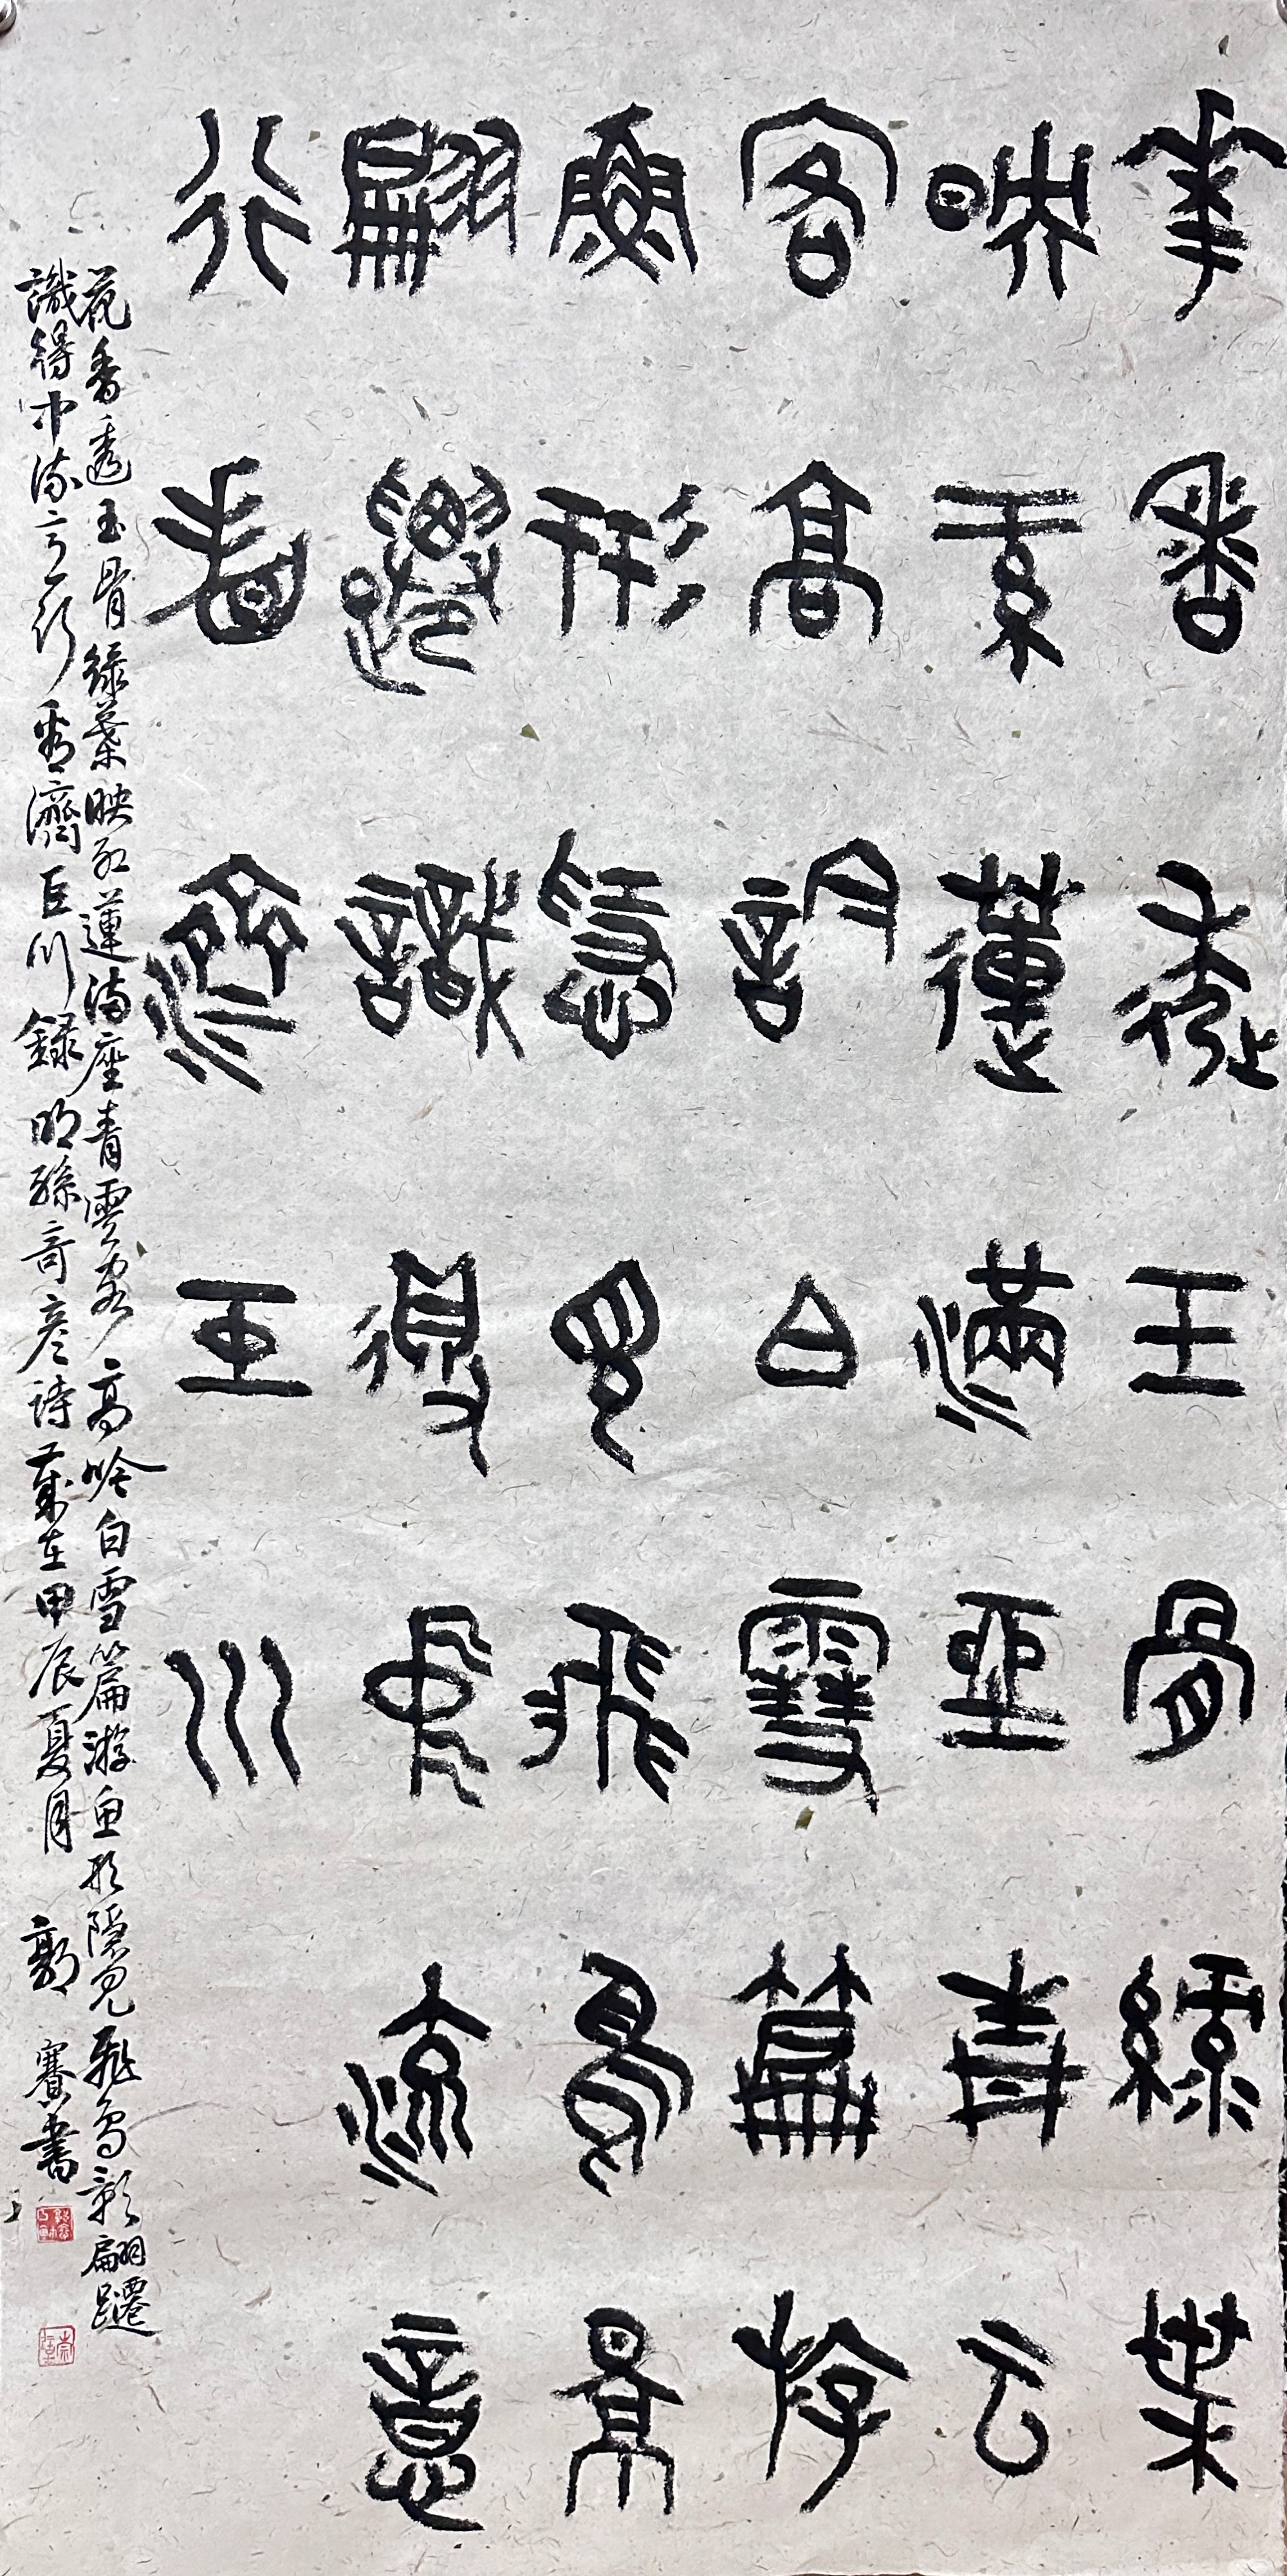 華香透玉骨綠葉
映紅蓮滿座青云
客高訡白雪篇游
魚形隱見飛鳥景
翩躚識得中流意
行看濟巨川
花香透玉骨綠葉映紅蓮滿座青雲客高吟白雪篇游魚形隱見飛鳥影翩躚
識得中流意行看濟巨川錄明孫奇彥詩歲在甲辰夏月 郭賽書